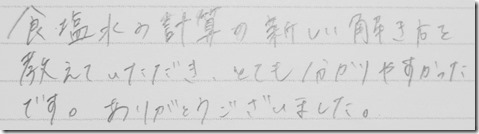 食塩水の計算の新しい解き方を
教えていただき、とても分かりやすかった
です。ありがとうございました。